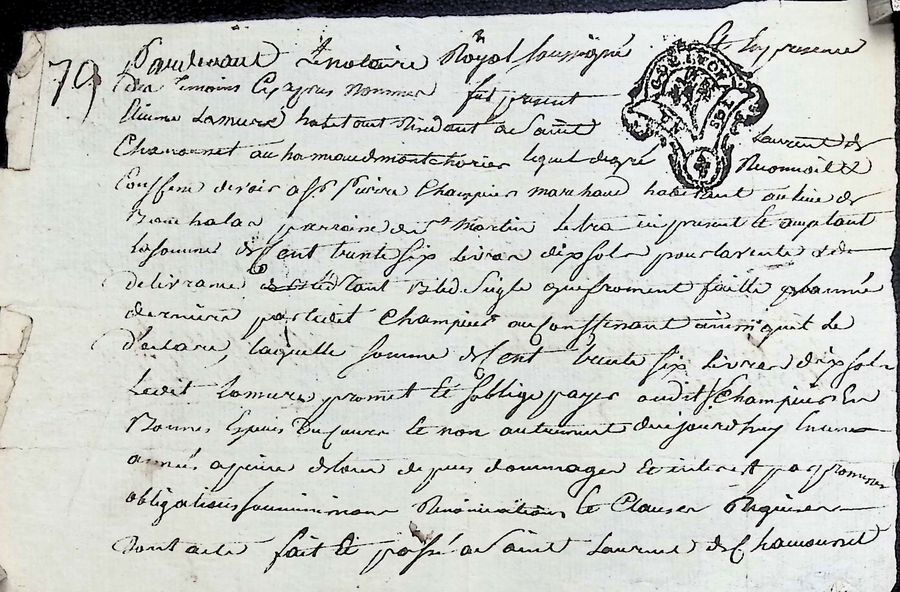 79 Pardevant Le notaire Royal soussigné Et En presence
des temoins Cy apres nommes fut present
Etienne Lamure habitant residant a Saint Laurent de
Chamousset au hameau de montchorier lequel de gré Reconnoit &
Confesse devoir a Sr. pierre Champier marchand habitant au lieu de
parroisse de St martin present Et acceptant
la somme de Cent trente six Livres dix sols pour la vente & de
delivrance tant Bled Seigle que froment faitte L'année
derniere par ledit Champier au Confessant ainsi qu'il Le
declare, laquelle somme de Cent trente six Livres dix sols
Ledit Lamure promet Et s'oblige payer audit Sr. Champier En
Bonnes Especes Du Cours Et non autrement dici jourd'huy En une
année a peine de tous depens dommages & interest par promesses
obligations soumissions Renonciations Et Clauses Requises
Dont acte fait Et passé a Saint Laurent de Chamousset
GEN LYON